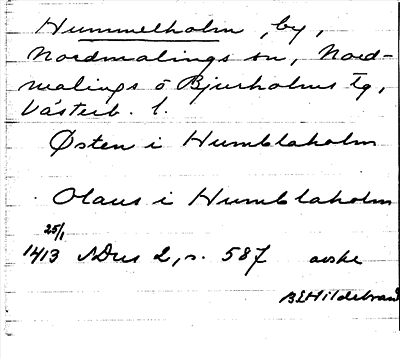 Hummelholm, by,
Nordmalings sn, Nord-
malings o Bjurholms tg,
Västerb. l.
Østen i Humblaholm
Olaus i Humblaholm
25/1
1413 SDns 2, s. 587 avskr
B E Hildebrand